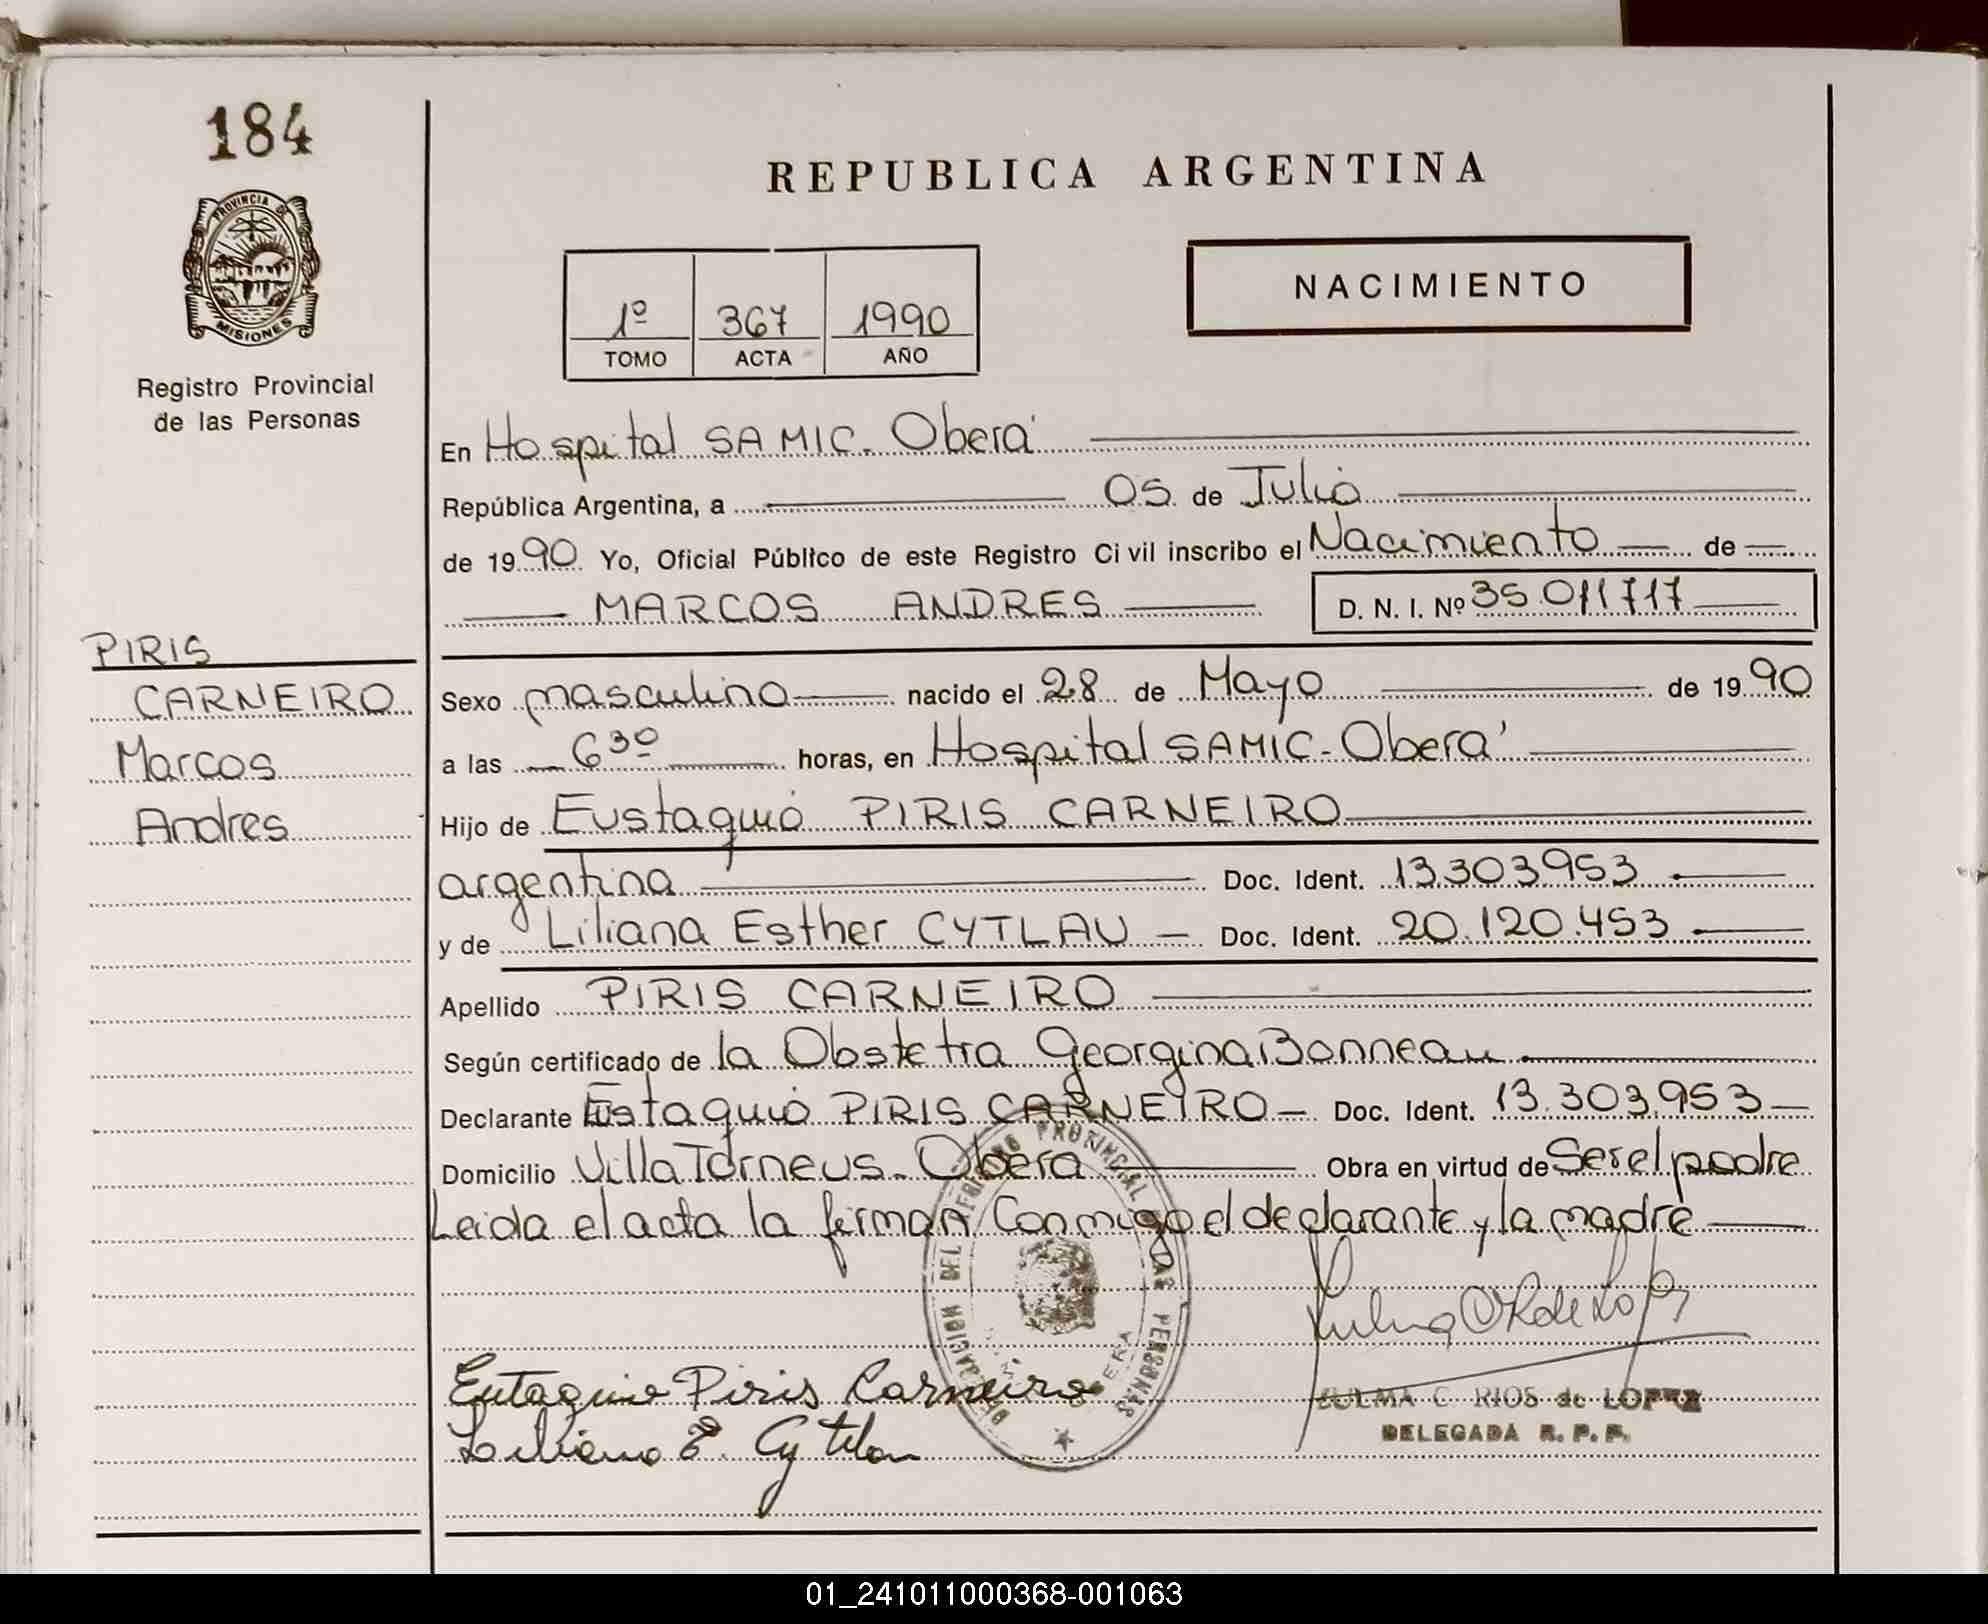 184
PROVINCIA DE
MISIONES
Registro Provincial
de las Personas
REPUBLICA ARGENTINA
NACIMIENTO
1º 367 1990
TOMO ACTA AÑO
En Hospital SAMIC. Oberá
República Argentina, a 05 de Julio
de 1990 Yo, Oficial Público de este Registro Civil inscribo el Nacimiento de
MARCOS ANDRES D. N. I. Nº 35 011717
PIRIS
CARNEIRO
Marcos
Andres
Sexo masculino nacido el 28 de Mayo de 1990
a las 6 30 horas, en Hospital SAMIC-Oberá
Hijo de Eustaquio PIRIS CARNEIRO
argentina Doc. Ident. 13.303953
y de Liliana Esther CYTLAU Doc. Ident. 20.120.453
Apellido PIRIS CARNEIRO
Según certificado de la Obstetra Georgina Bonneau
Declarante Eustaquio PIRIS CARNEIRO Doc. Ident. 13.303.953
Domicilio Villa Torneus-Oberá Obra en virtud de Ser el padre
Leida el acta la firman Conmigo el declarante y la madre
DELEGACION DEL REGISTRO PROVINCIAL DE LAS PERSONAS
Eutaquio Piris Carneiro
Liliana E. Cytlau
ZULMA C. RIOS de LOPEZ
DELEGADA R. P. P.
01_241011000368-001063